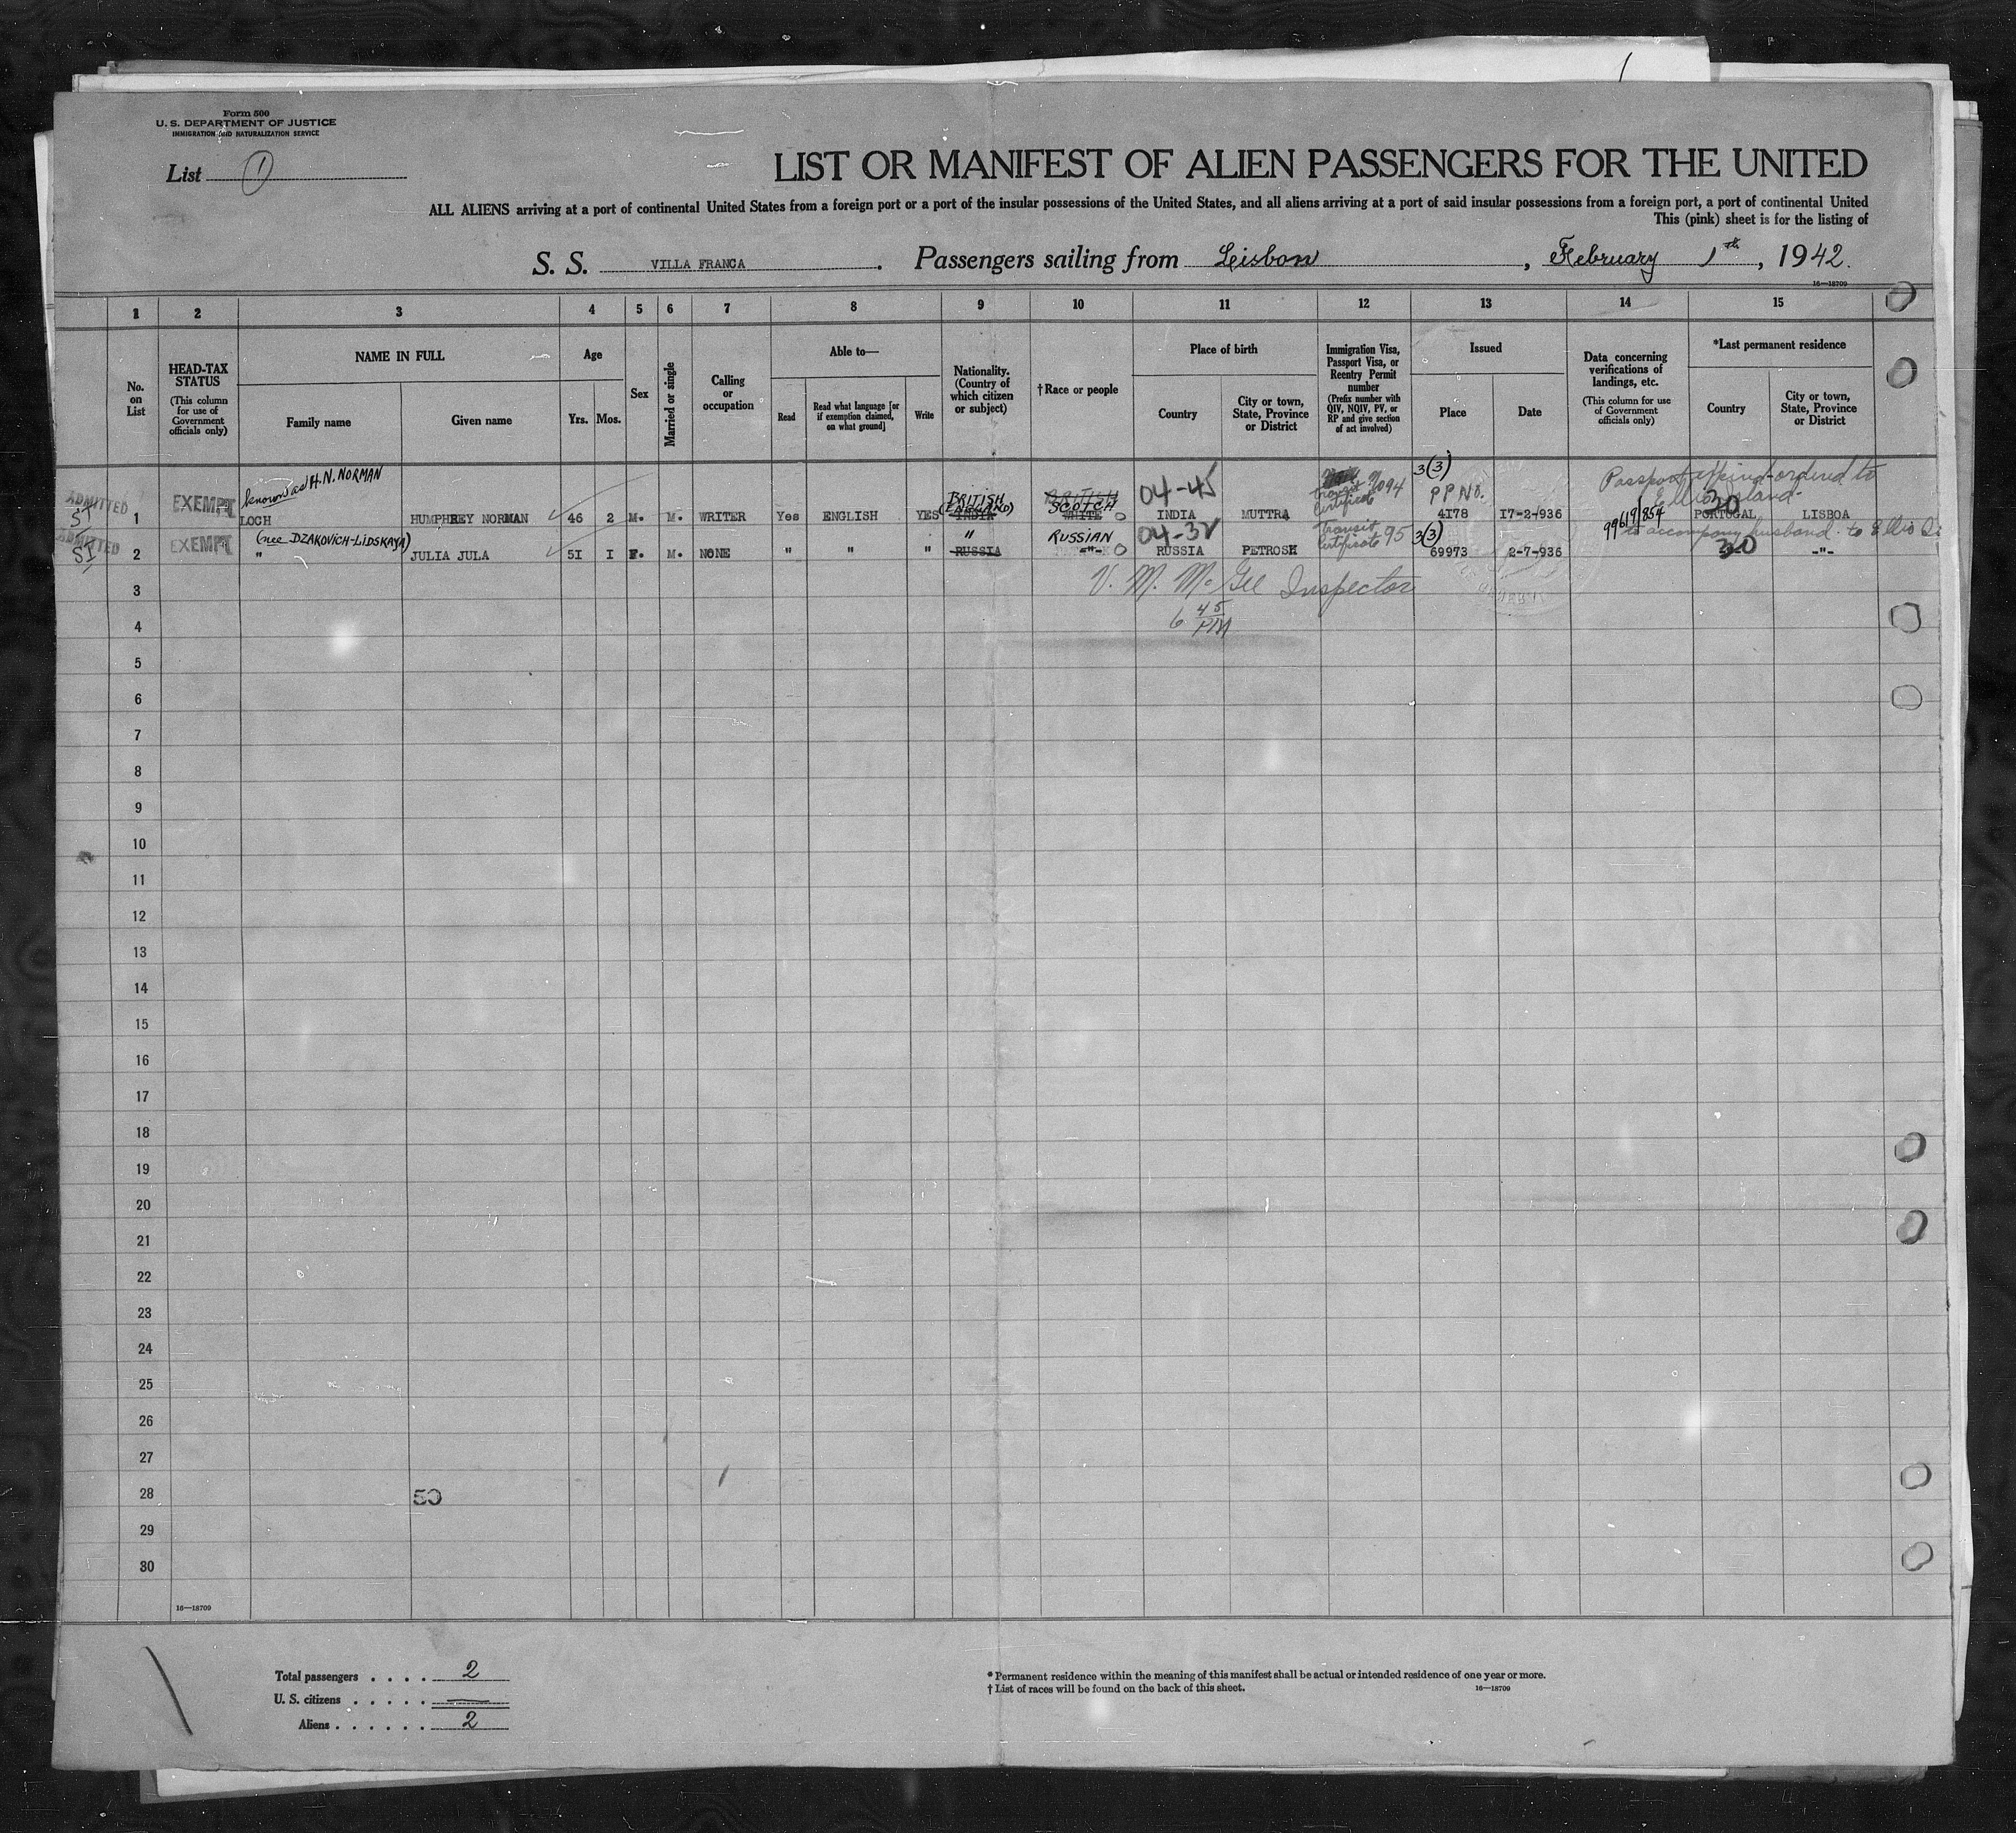 Form 500
U. S. DEPARTMENT OF JUSTICE
IMMIGRATION AND NATURALIZATION SERVICE
List 1
LIST OR MANIFEST OF ALIEN PASSENGERS FOR THE UNITED
ALL ALIENS arriving at a port of continental United States from a foreign port or a port of the insular possessions of the United States, and all aliens arriving at a port of said insular possessions from a foreign port, a port of continental United
This (pink) sheet is for the listing of
S. S. VILLA FRANCA. Passengers sailing from Lisbon, February 1th, 1942.
16—18709
1 2 3 4 5 6 7 8 9 10 11 12 13 14 15
No. on List
HEAD-TAX STATUS
(This column for use of Government officials only)
NAME IN FULL
Family name
Given name
Age
Yrs.
Mos.
Sex
Married or single
Calling or occupation
Able to—
Read
Read what language [or if exemption claimed, on what ground]
Write
Nationality. (Country of which citizen or subject)
†Race or people
Place of birth
Country
City or town, State, Province or District
Immigration Visa, Passport Visa, or Reentry Permit number
(Prefix number with QIV, NQIV, PV, or RP and give section of act involved)
Issued
Place
Date
Data concerning verifications of landings, etc.
(This column for use of Government officials only)
*Last permanent residence
Country
City or town, State, Province or District
known as H. N. NORMAN
ADMITTED SI 1 EXEMPT LOCH HUMPHREY NORMAN 46 2 M. M. WRITER Yes ENGLISH YES BRITISH (ENGLAND) INDIA BRITISH SCOTCH WHITE 04-45 INDIA MUTTRA Transit Certificate 9094 3(3) PP No. 4I78 I7-2-936 Passport ordered to Ellis Island. 99619/854 30 PORTUGAL LISBOA
(nee DZAKOVICH-LIDSKAYA)
ADMITTED SI 2 EXEMPT " JULIA JULA 5I I F. M. NONE " " " " RUSSIA RUSSIAN -"- 04-32 RUSSIA PETROSK Transit Certificate 95 3(3) 69973 2-7-936 to accompany husband to Ellis Is 30 -"-
3 V. M. McGee Inspector
4 6 45 PM
5
6
7
8
9
10
11
12
13
14
15
16
17
18
19
20
21
22
23
24
25
26
27
28 50
29
30
16—18709
Total passengers . . . . 2
U. S. citizens . . . . . —
Aliens . . . . . . 2
* Permanent residence within the meaning of this manifest shall be actual or intended residence of one year or more.
† List of races will be found on the back of this sheet.
16—18709